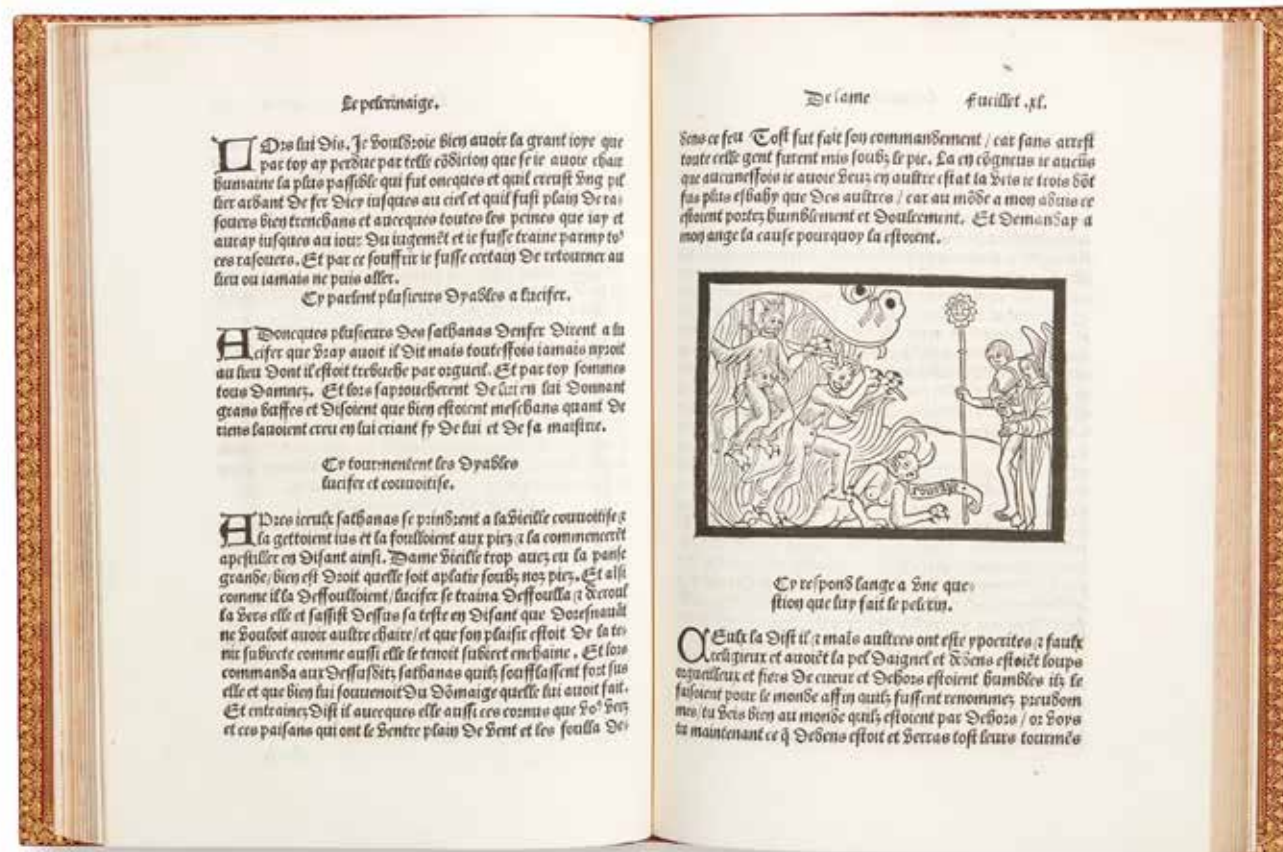 Le pelerinaige.
LOrs lui dis. Je vouldroie bien avoir la grant ioye que
par toy ay perdue par telle cõdicion que se ie avoie chair
humaine la plus passible qui fut oncques et quil creust vng pil
lier ardant de fer dicy iusques au ciel et quil fust plain de ra-
souers bien trenchans et avecques toutes les peines que iay et
auray iusques au iour du iugemẽt et ie fusse traine parmy to⁹
ces rasouers. Et par ce souffrir ie fusse certain de retourner au
lieu ou iamais ne puis aller.
Cy parlent plusieurs dyables a lucifer.
ADoncques plusieurs des sathanas denfer dirent a lu
cifer que vray avoit il dit mais touteffois iamais nyroit
au lieu dont il estoit trebuche par orgueil. Et par toy sommes
tous damnez. Et lors saproucherent de lui en lui donnant
grans buffes et disoient que bien estoient meschans quant de
riens lavoient creu en lui criant fy de lui et de sa maistrie.
Cy tourmentent les dyables
lucifer et couuoitise.
APres iceulx sathanas se prindrent a la vieille couuoitise ⁊
la gettoient ius et la foulloient aux piez ⁊ la commencerẽt
apestiller en disant ainsi. Dame vieille trop avez eu la panse
grande/bien est droit quelle soit aplatie soubz noz piez. Et alsi
comme il la deffoulloient/lucifer se traina deffoulla ⁊ deroul
la vers elle et sassist dessus sa teste en disant que doresnauãt
ne vouloit avoir aultre chaire/et que son plaisir estoit de la te-
nir subiecte comme aussi elle le tenoit subiect enchaine. Et lors
commanda aux dessusditz sathanas quilz soufflassent fort sus
elle et que bien lui souuenoit du dõmaige quelle lui avoit fait.
Et entrainez dist il avecques elle aussi ces cornus que vo⁹ veez
et ces paisans qui ont le ventre plain de vent et les foulla de-
De lame fueillet .xl.
dens ce feu Tost fut fait son commandement / car sans arrest
toute celle gent furent mis soubz le pie. La en cõgneus ie aucũs
que aucuneffois ie avoie veuz en aultre estat la veis ie trois dõt
fus plus esbahy que des aultres / car au mõde a mon aduis ce
estoient portez humblement et doulcement. Et demanday a
mon ange la cause pourquoy la estoient.
Cy respond lange a vne que-
stion que luy fait le pelerin.
CEulx la dist il ⁊ mais aultres ont este ypocrites ⁊ faulx
religieux et avoiẽt la pel daignel et dedens estoiẽt loups
orgueilleux et fiers de cueur et dehors estoient humbles ilz le
faisoient pour le monde affin quilz fussent renommez preudom
mes/tu veis bien au monde quilz estoient par dehors / or voys
tu maintenant ce q̃ dedens estoit et verras tost leurs tourmẽs